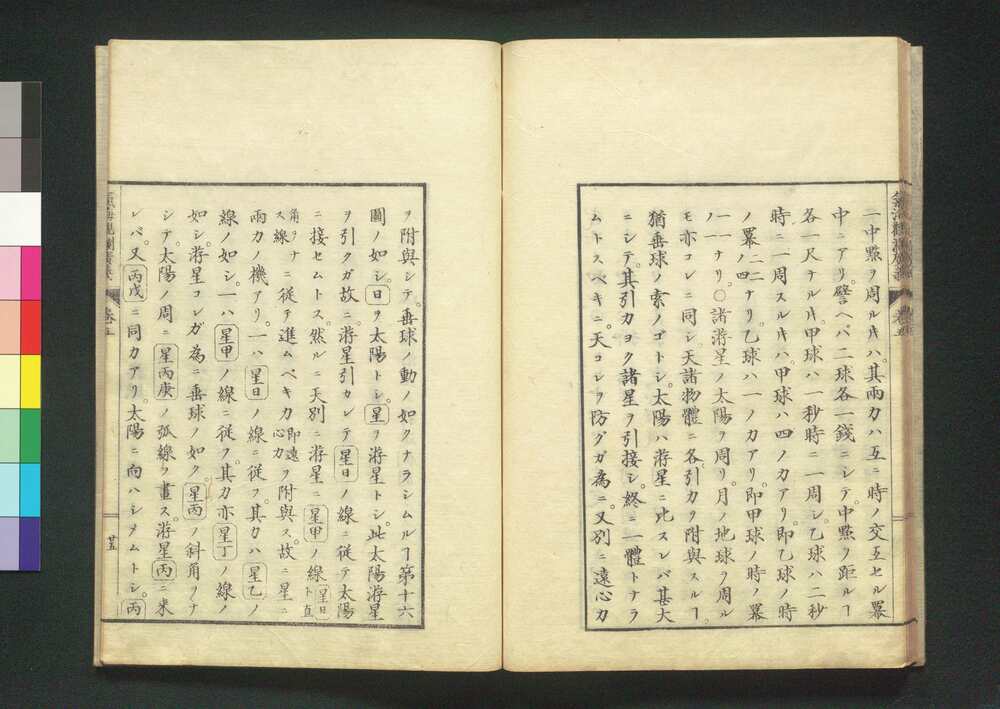 一中點ヲ周ルキハ。其兩力ハ互ニ時ノ交互セル冪
中ニアリ。譬ヘバ二球各一錢ニシテ。中點ヲ距ルヿ
各一尺ナルキ。甲球ハ一秒時ニ一周シ。乙球ハ二秒
時ニ一周スルキハ。甲球ハ四ノ力アリ。即乙球ノ時
ノ冪 二二ノ四 ナリ。乙球ハ一ノ力アリ。即甲球ノ時ノ冪
一一ノ一 ナリ。○諸游星ノ太陽ヲ周リ。月ノ地球ヲ周ル
モ亦コレニ同シ。天諸物體ニ各引力ヲ附與スルヿ。
猶垂球ノ索ノゴトシ。太陽ハ游星ニ比スレバ甚大
ニシテ。其引力ヨク諸星ヲ引接シ。終ニ一體トナラ
ムトスベキニ。天コレヲ防グガ為ニ。又別ニ遠心力
ヲ附與シテ。垂球ノ動ノ如クナラシムルヿ第十六
圖ノ如シ。日ヲ太陽トシ。星ヲ游星トシ。此太陽游星
ヲ引クガ故ニ。游星引カレテ星日ノ線ニ従テ太陽
ニ接セムトス。然ルニ天別ニ游星ニ星甲ノ線 星日ト直
角ヲナス線 ニ従テ進ムベキ力 即遠心力 ヲ附與ス。故ニ星ニ
兩力ノ機アリ。一ハ星日ノ線ニ従フ。其力ハ星乙ノ
線ノ如シ。一ハ星甲ノ線ニ従フ。其力亦星丁ノ線ノ
如シ。游星コレガ為ニ垂球ノ如ク。星丙ノ斜角ヲナ
シテ。太陽ノ周ニ星丙庚ノ弧線ヲ畫ス。游星丙ニ来
レバ。又丙戊ニ同力アリ。太陽ニ向ハシメムトシ。丙
卷五